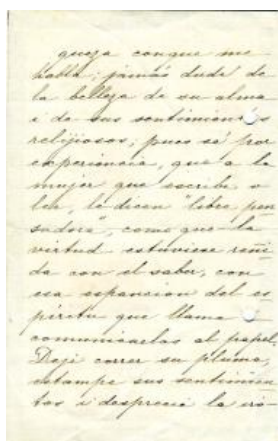 queza conque me
habla; jamás dudé de
la belleza de su alma
i de sus sentimientos
relijiosos; pues sé por
experiencia, que a la
mujer que escribe o
lee, le dicen "libre pen
sadora", como que la
virtud estuviese reñi
da con el saber, con
esa espansion del es
píritu que llama a
comunicarlos al papel.
Deje correr su pluma,
estampe sus sentimien
tos i desprecie la iró-